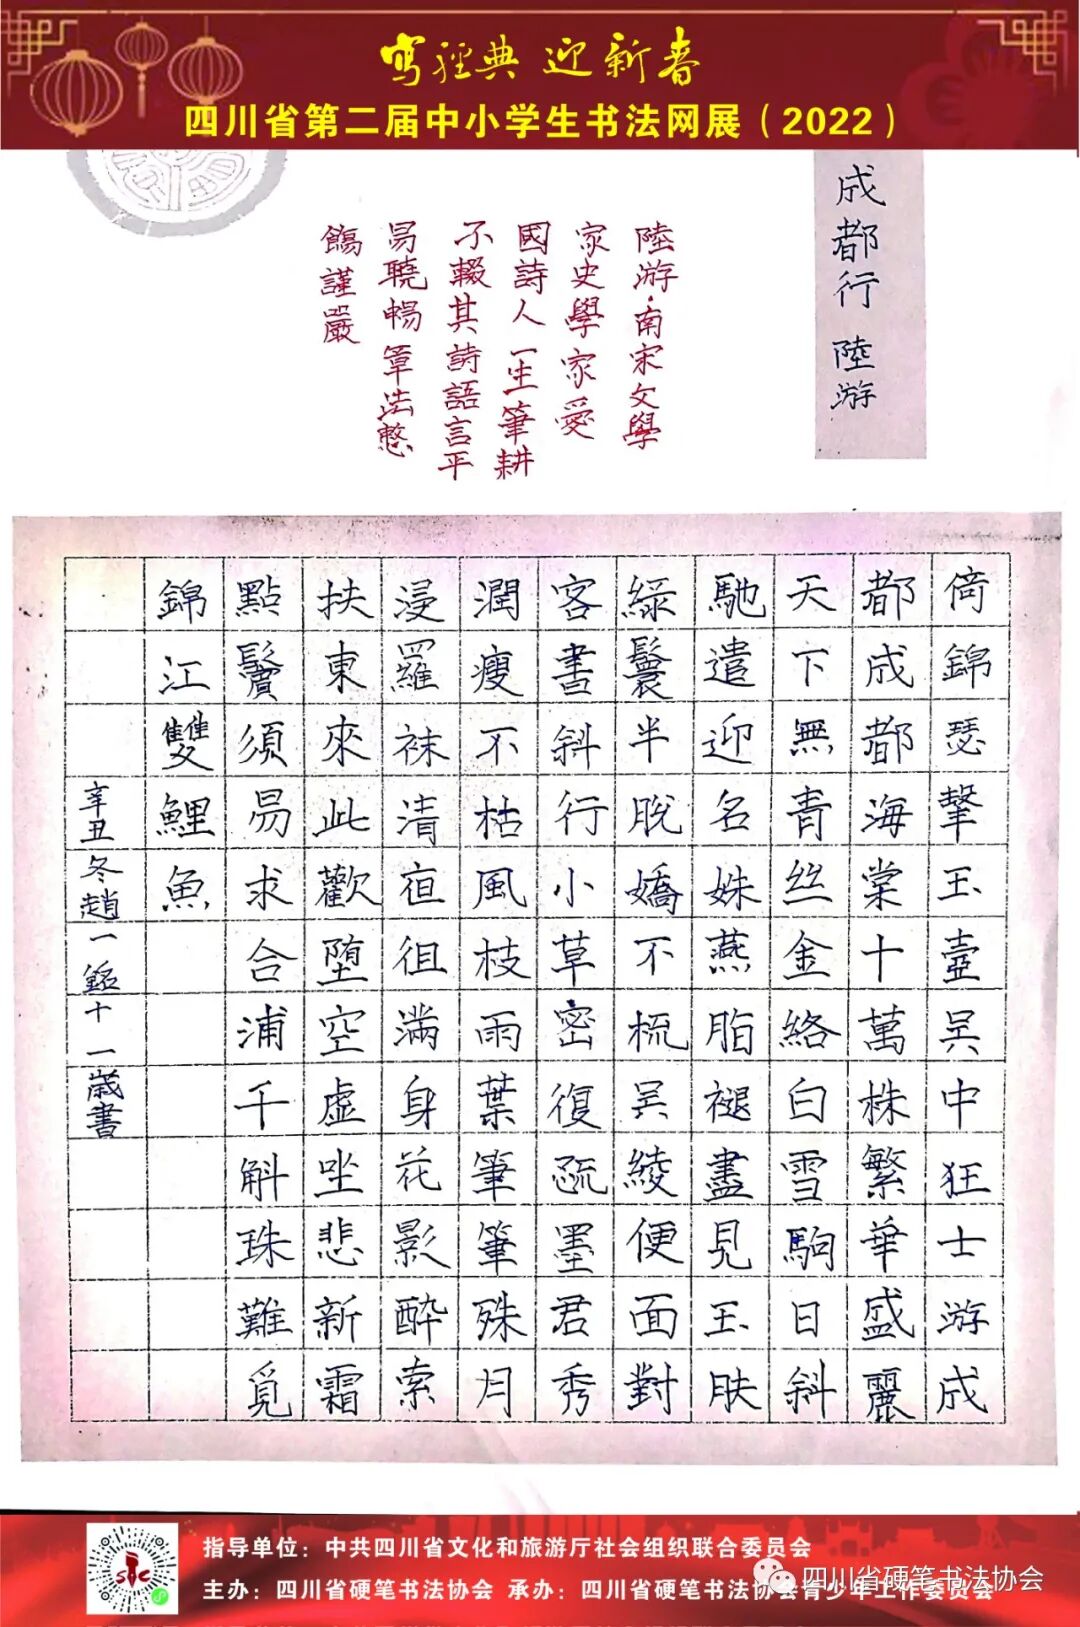 寫經典 迎新春
四川省第二届中小学生书法网展（2022）
成都行 陸游
陸游·南宋文學
家史學家愛
國詩人一生筆耕
不輟其詩語言平
易曉暢章法整
飭謹嚴
倚錦瑟擊玉壺吳中狂士游成
都成都海棠十萬株繁華盛麗
天下無青丝金絡白雪駒日斜
馳遣迎名姝燕脂褪盡見玉肤
綠鬟半脫嬌不梳吳綾便面對
客書斜行小草密復疏墨君秀
潤瘦不枯風枝雨葉筆筆殊月
浸羅袜清亱徂满身花影醉索
扶東來此歡堕空虚坐悲新霜
點鬢須易求合浦千斛珠難覓
錦江雙鯉魚
辛丑冬趙一銘十一歲書
指导单位：中共四川省文化和旅游厅社会组织联合委员会
主办：四川省硬笔书法协会 承办：四川省硬笔书法协会青少年工作委员会
四川省硬笔书法协会